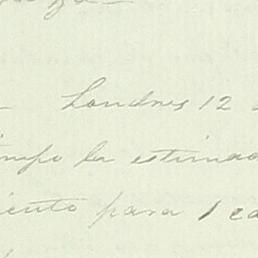 Londres 12
la estimad
iento para 1 ca